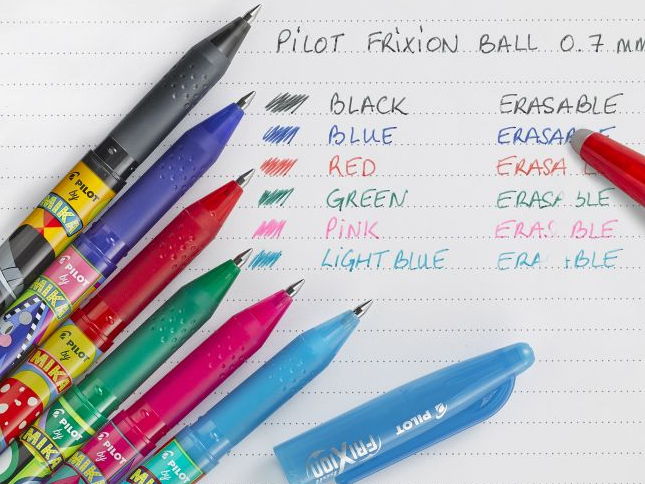 PILOT FRIXION BALL 0.7 mm
BLACK ERASABLE
BLUE ERASAB E
RED ERASA LE
GREEN ERASA BLE
PINK ERAS BLE
LIGHT BLUE ERA BLE
PILOT
by
MIKA
PILOT
by
MIKA
PILOT
by
MIKA
PILOT
by
MIKA
PILOT
by
MIKA
PILOT
by
PILOT
FRIXION